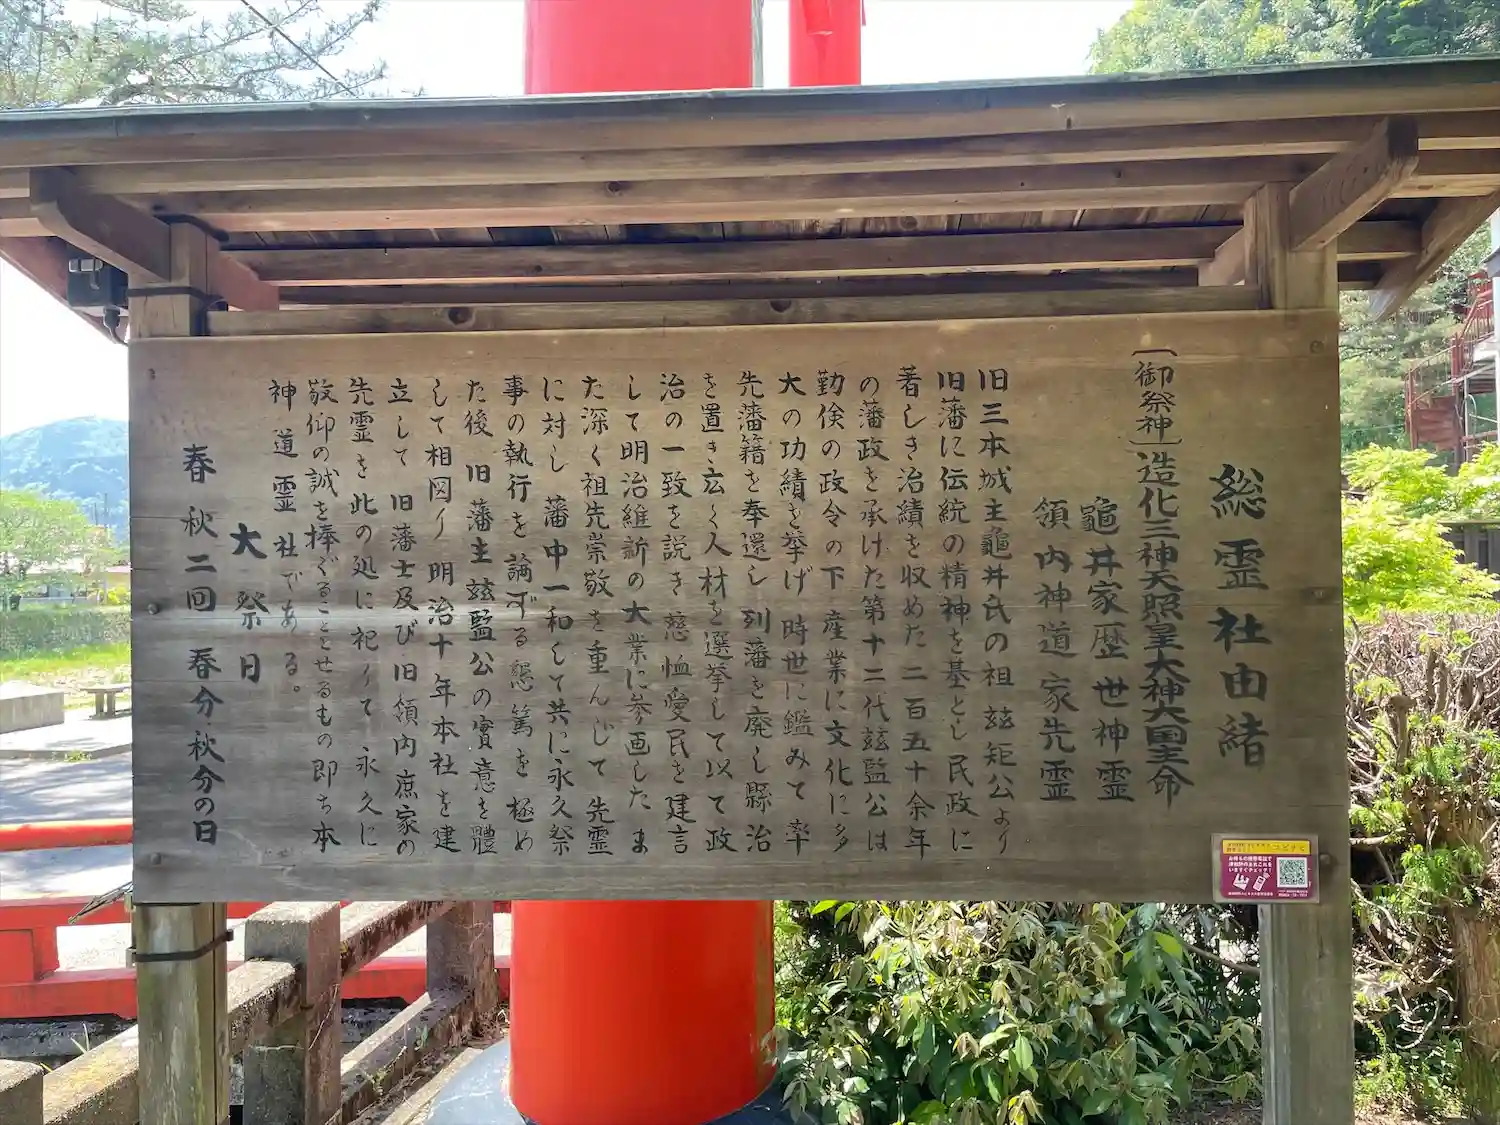 総霊社由緒
〔御祭神〕造化三神天照皇大神大国主命
龜井家歴世神霊
領内神道家先霊
旧三本城主龜井氏の祖玆矩公より
旧藩に伝統の精神を基とし民政に
著しき治績を収めた二百五十余年
の藩政を承けた第十二代玆監公は
勤倹の政令の下産業に文化に多
大の功績を挙げ時世に鑑みて率
先藩籍を奉還し列藩を廃し縣治
を置き広く人材を選挙して以て政
治の一致を説き慈恤愛民を建言
して明治維新の大業に参画したま
た深く祖先崇敬を重んじて先霊
に対し藩中一和して共に永久祭
事の執行を諭する懇篤を極め
た後旧藩主玆監公の實意を體
して相図り明治十年本社を建
立して旧藩士及び旧領内庶家の
先霊を此の処に祀りて永久に
敬仰の誠を捧ぐることとせるもの即ち本
神道霊社である。
大祭日
春秋二回春分・秋分の日